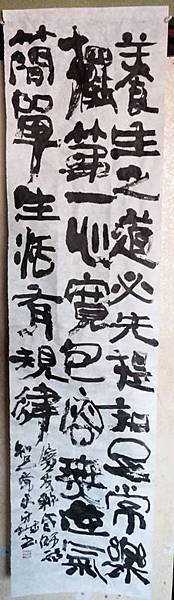 養生之道必先提知足常樂
擺第一心寬包容無世氣
簡單生活有規律